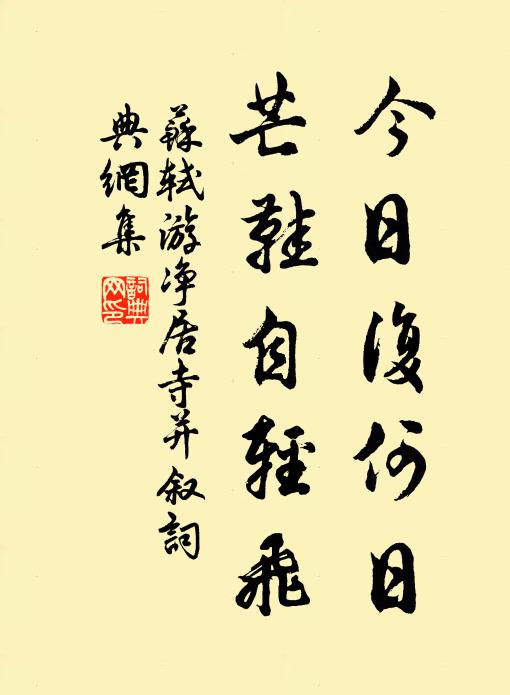 今日復何日
芒鞋自輕飛
蘇軾游净居寺并叙詞
典網集
詞典网印